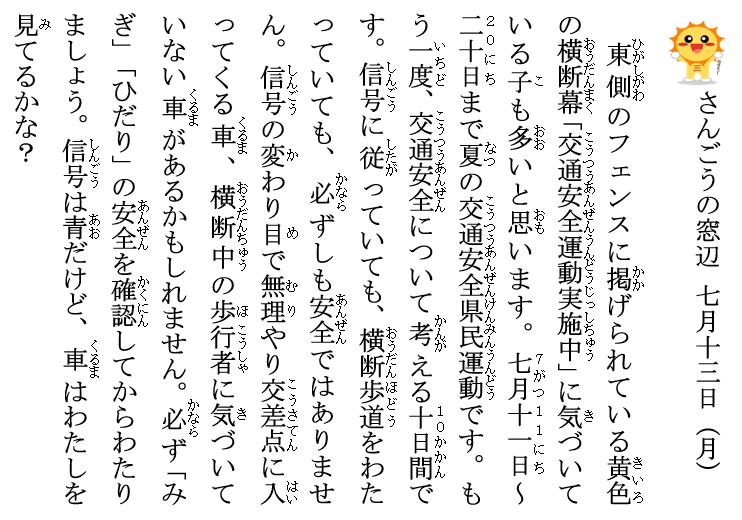 さんごうの窓辺　七月十三日（月）
東側のフェンスに掲げられている黄色
の横断幕「交通安全運動実施中」に気づいて
いる子も多いと思います。七月十一日～
二十日まで夏の交通安全県民運動です。も
う一度、交通安全について考える十日間で
す。信号に従っていても、横断歩道をわた
っていても、必ずしも安全ではありませ
ん。信号の変わり目で無理やり交差点に入
ってくる車、横断中の歩行者に気づいて
いない車があるかもしれません。必ず「み
ぎ」「ひだり」の安全を確認してからわたり
ましょう。信号は青だけど、車はわたしを
見てるかな？